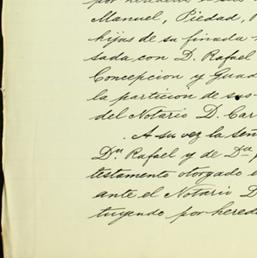 por herederos
Manuel, Piedad,
hijas de su finada
sada con D. Rafael
Concepcion y Guad
la particion de sus
del Notario D. Car
A su vez la señ
Dn. Rafael y de Da
testamento otorgado e
ante el Notario D
tuyendo por hered